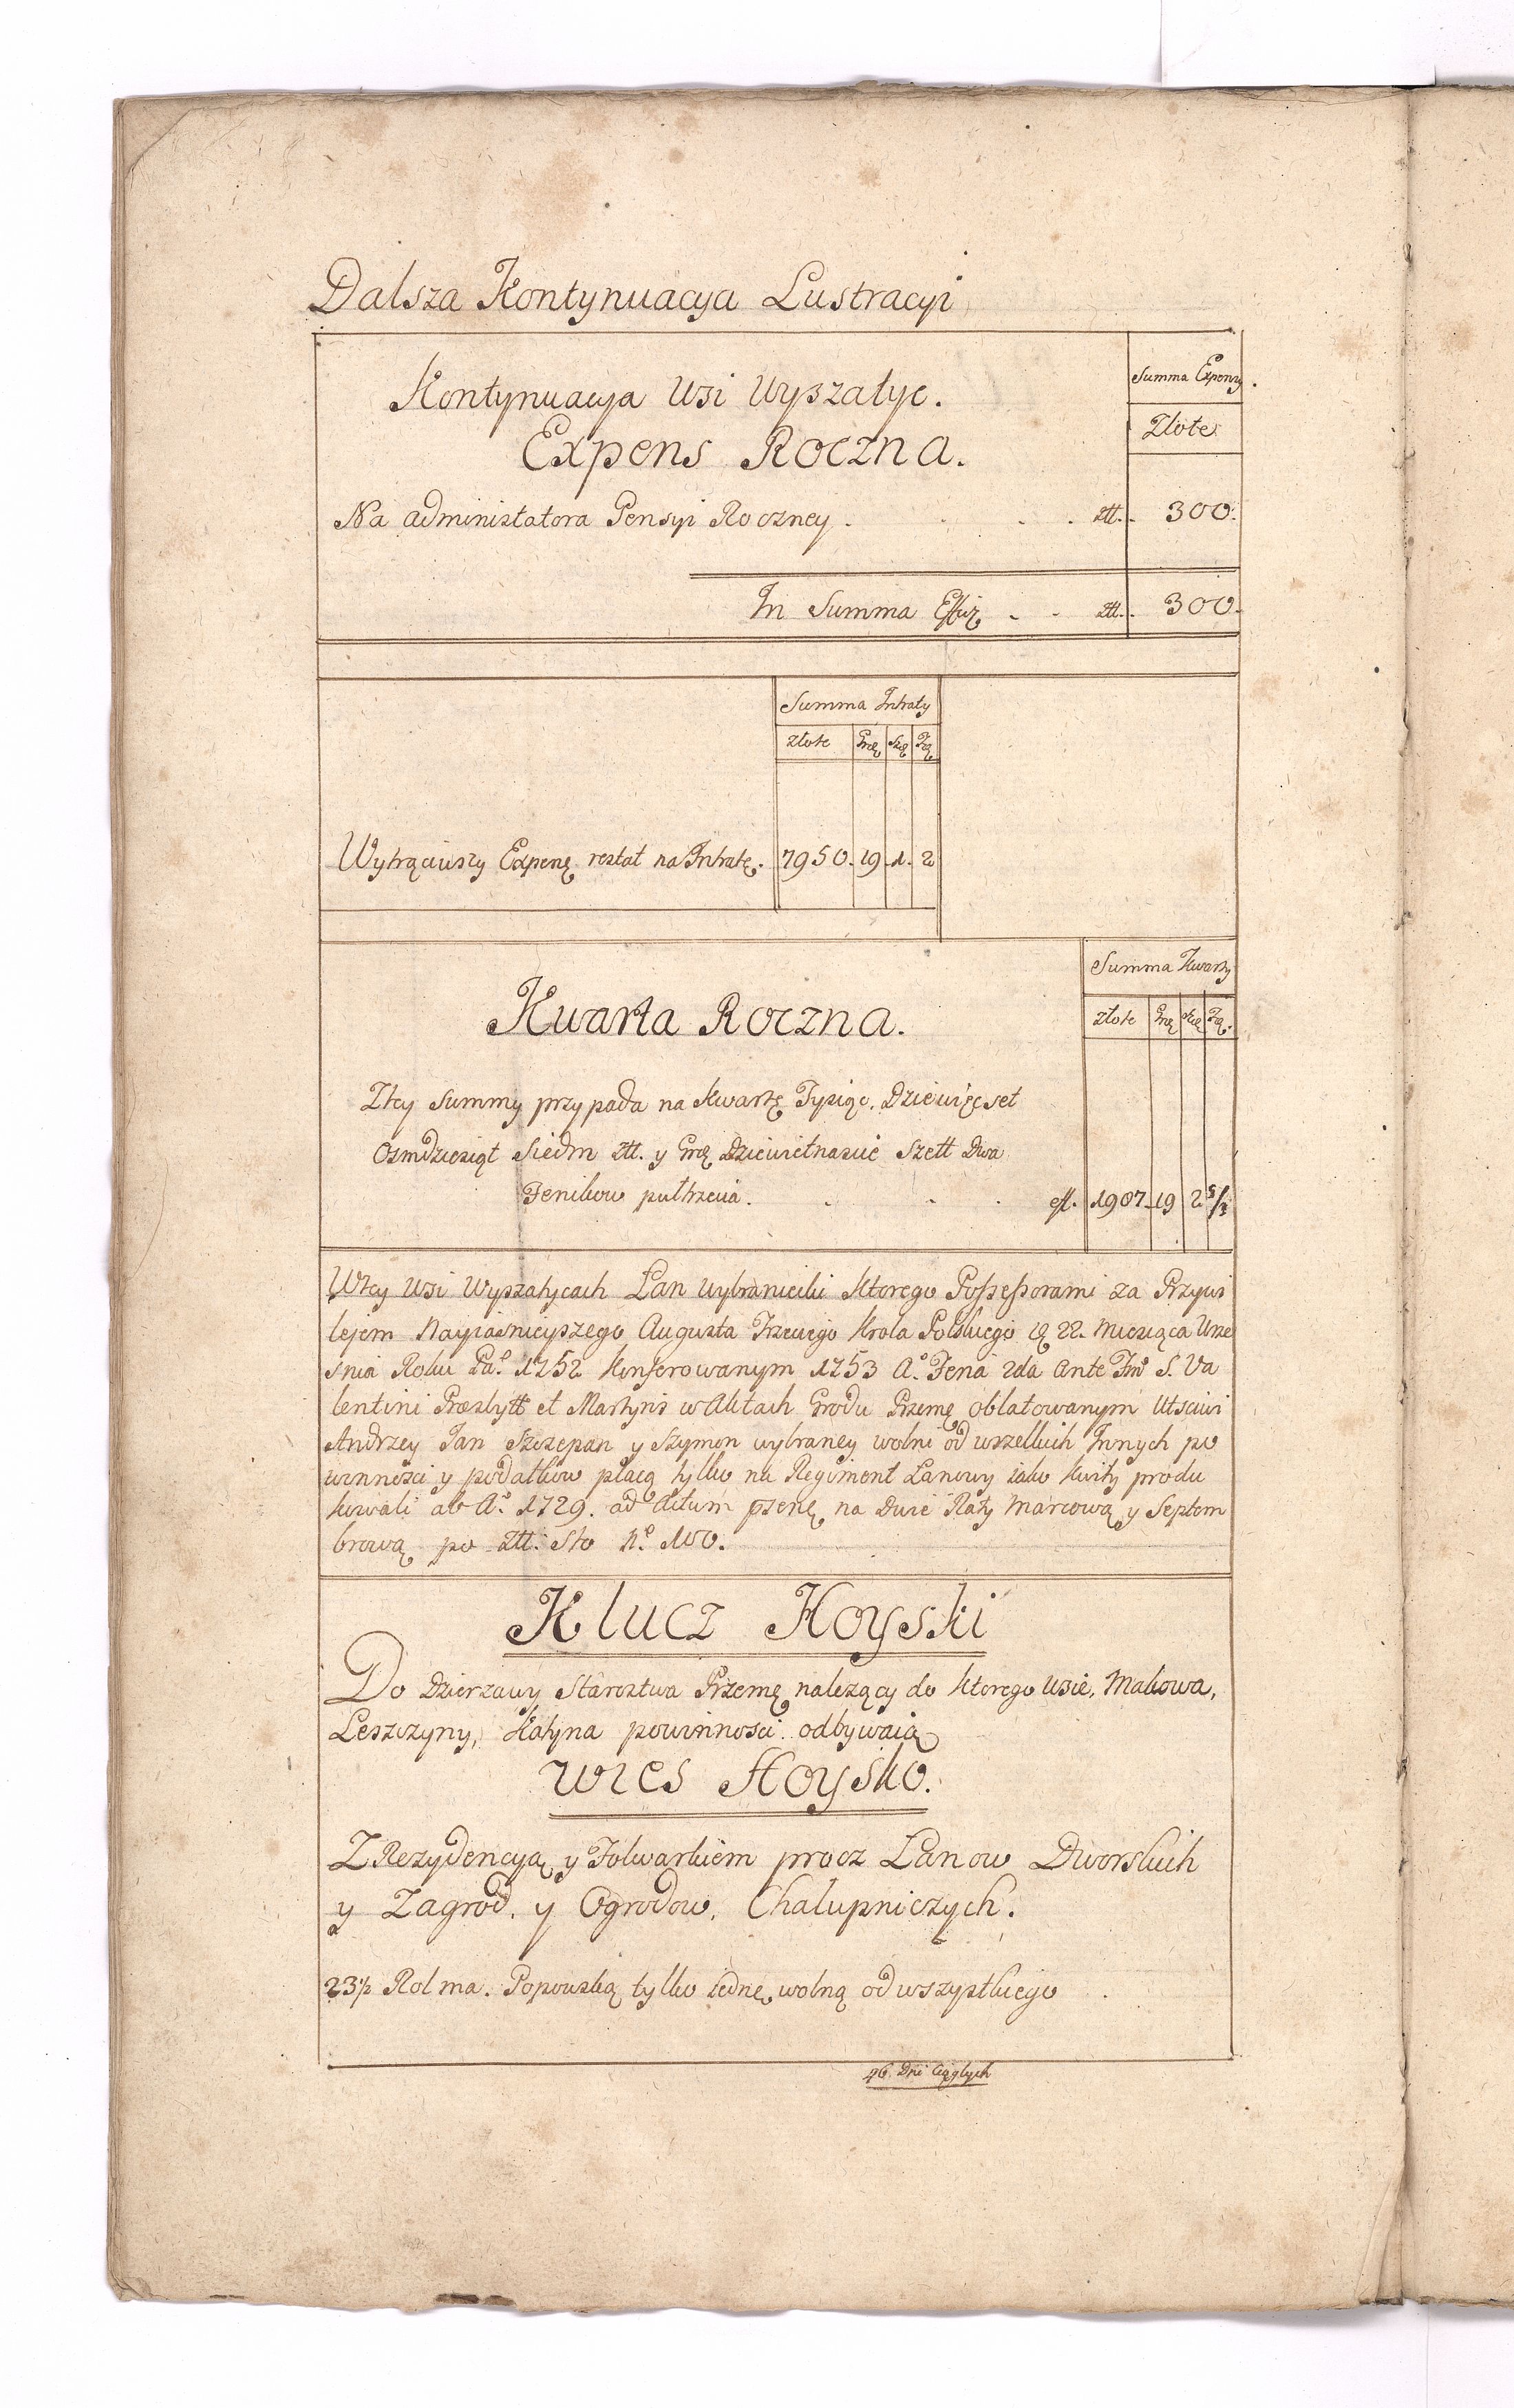 Dalsza Kontynuacya Lustracyi
Kontynuacya Wsi Wyszatyc.
Summa Expensy.
Expens Roczna.
Złote
Na administatora Pensyi Roczney . . . . złł. 300.
In Summa Effię . . złł. 300.
Summa Intraty
złote Grę Szę Fzą
Wytrąciwszy Expensę restat na Intratę. 7950. 19. 1. 2
Summa Kwarty
Kwarta Roczna.
złote Grę Szę Fzą.
Ztey Summy przypada na kwartę Tysiąc. Dziewięcset
Osmdziesiąt Siedm złł. y Grę Dziewietnascie Szełł Dwa
Fenikow pułtrzecia . . . . eff. 1987. 19 2 5/3
Wtey Wsi Wyszatycach Łan Wybraniecki Ktorego Possessorami za Przywi
lejem Nayiasnieyszego Augusta Trzeciego Krola Polskiego 22. Miesiąca Wrze
snia Roku Pao. 1752 konferowanym 1753 Ao. Feria 2da Ante S. Va
lentini Præsbytt et Martyris w Aktach Grodu Przemę oblatowanym Utsciwi
Andrzey Jan Szczepan y Szymon wybraney wolni od wszelkich Innych po
winnosci y podatkow płacą tylko na Regiment Łanowy iako kwity produ
kowali ab Ao. 1729. ad Actum psenę na Dwie Raty Marcową y Septem
browę po złł. Sto No. 100.
Klucz Hoyski
Do Dzierzawy Starostwa Przemę nalezący do ktorego wsie, Makowa,
Leszczyny, Katyna powinnosci odbywaią
Wies Hoysko.
Z Rezydencyą y Folwarkiem procz Łanow Dworskich
y Zagrod. y Ogrodow. Chałupniczych.
23½ Rol ma. Popowską tylko iednę wolną od wszystkiego .
46. Dni Ciągłych